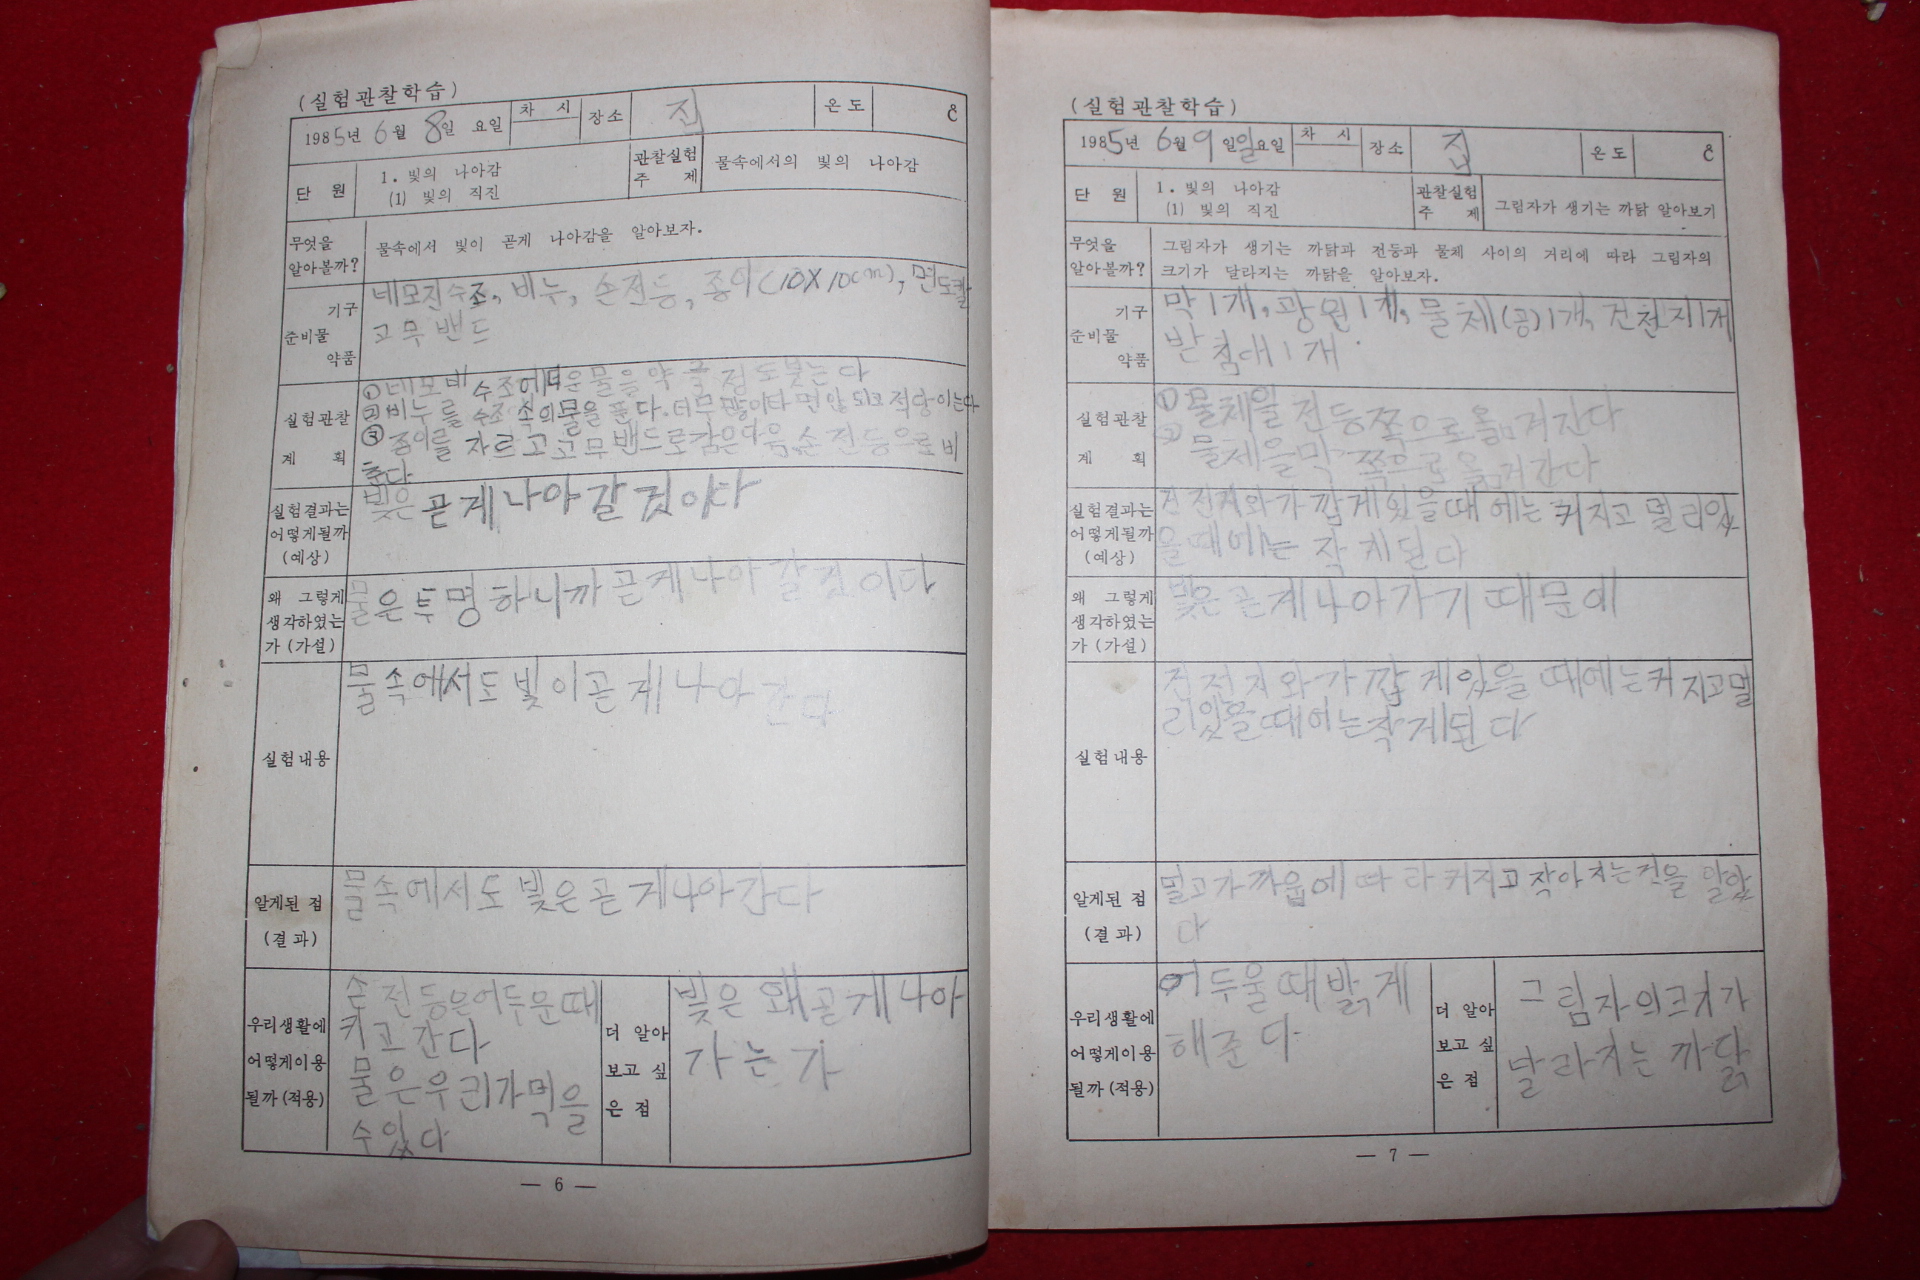 (실험관찰학습)
1985년 6월 8일 요일 차 시 장소 집 온도 ℃
단 원 1. 빛의 나아감
(1) 빛의 직진
관찰실험
주 제
물속에서의 빛의 나아감
무엇을
알아볼까?
물속에서 빛이 곧게 나아감을 알아보자.
기구
준비물
약품
네모진수조, 비누, 손전등, 종이(10X10cm), 면도칼
고무밴드
실험관찰
계 획
① 네모 수조에 물을 약 정도붓는다
② 비누를 수조 속의물을 푼다. 너무많이타면안되고 적당
③ 종이를 자르고고무밴드로감은다음,손전등으로비
춘다
실험결과는
어떻게될까
(예상)
빛은 곧게나아갈것이다
왜 그렇게
생각하였는
가(가설)
물은투명하니까곧게나아갈것이다
실험내용
물속에서도빛이곧게나아간다
알게된 점
(결과)
물속에서도빛은곧게나아간다
우리생활에
어떻게이용
될까(적용)
손전등은어두운때
키고간다
물은우리가먹을
수있다
더 알아
보고 싶
은 점
빛은왜곧게나아
가는가
— 6 —
(실험관찰학습)
1985년 6월 9일 일요일 차 시 장소 집 온도 ℃
단 원 1. 빛의 나아감
(1) 빛의 직진
관찰실험
주 제
그림자가 생기는 까닭 알아보기
무엇을
알아볼까?
그림자가 생기는 까닭과 전등과 물체 사이의 거리에 따라 그림자의
크기가 달라지는 까닭을 알아보자.
기구
준비물
약품
막1개,광원1개,물체(공)1개,건천지1개
받침대1개
실험관찰
계 획
① 물체일전등쪽으로옮겨간다
② 물체을막쪽으로옮겨간다
실험결과는
어떻게될까
(예상)
건전지와가깝게있을때에는커지고멀리있
을때에는작게된다
왜 그렇게
생각하였는
가(가설)
빛은곧게나아가기때문에
실험내용
건전지와가깝게있을때에는커지고멀
리있을때에는작게된다
알게된 점
(결과)
멀고가까움에따라커지고작아지는것을알았
다
우리생활에
어떻게이용
될까(적용)
어두울때밝게
해준다
더 알아
보고 싶
은 점
그림자의크기가
달라지는까닭
— 7 —